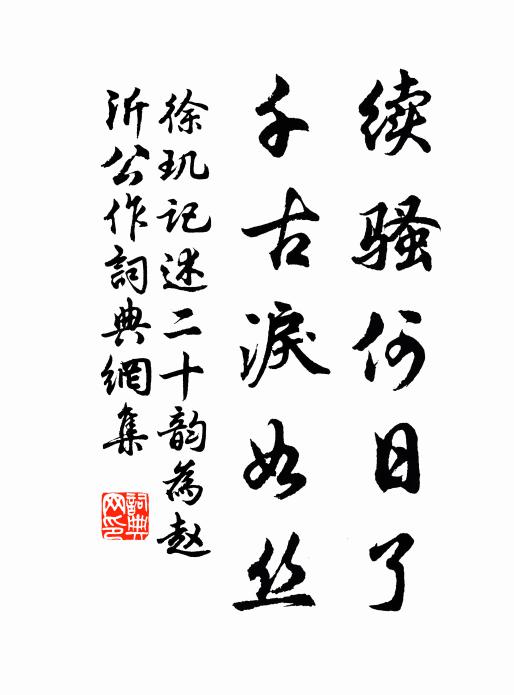 续骚何日了
千古淚如丝
徐玑记述二十韵為赵
沂公作詞典網集
詞典网印